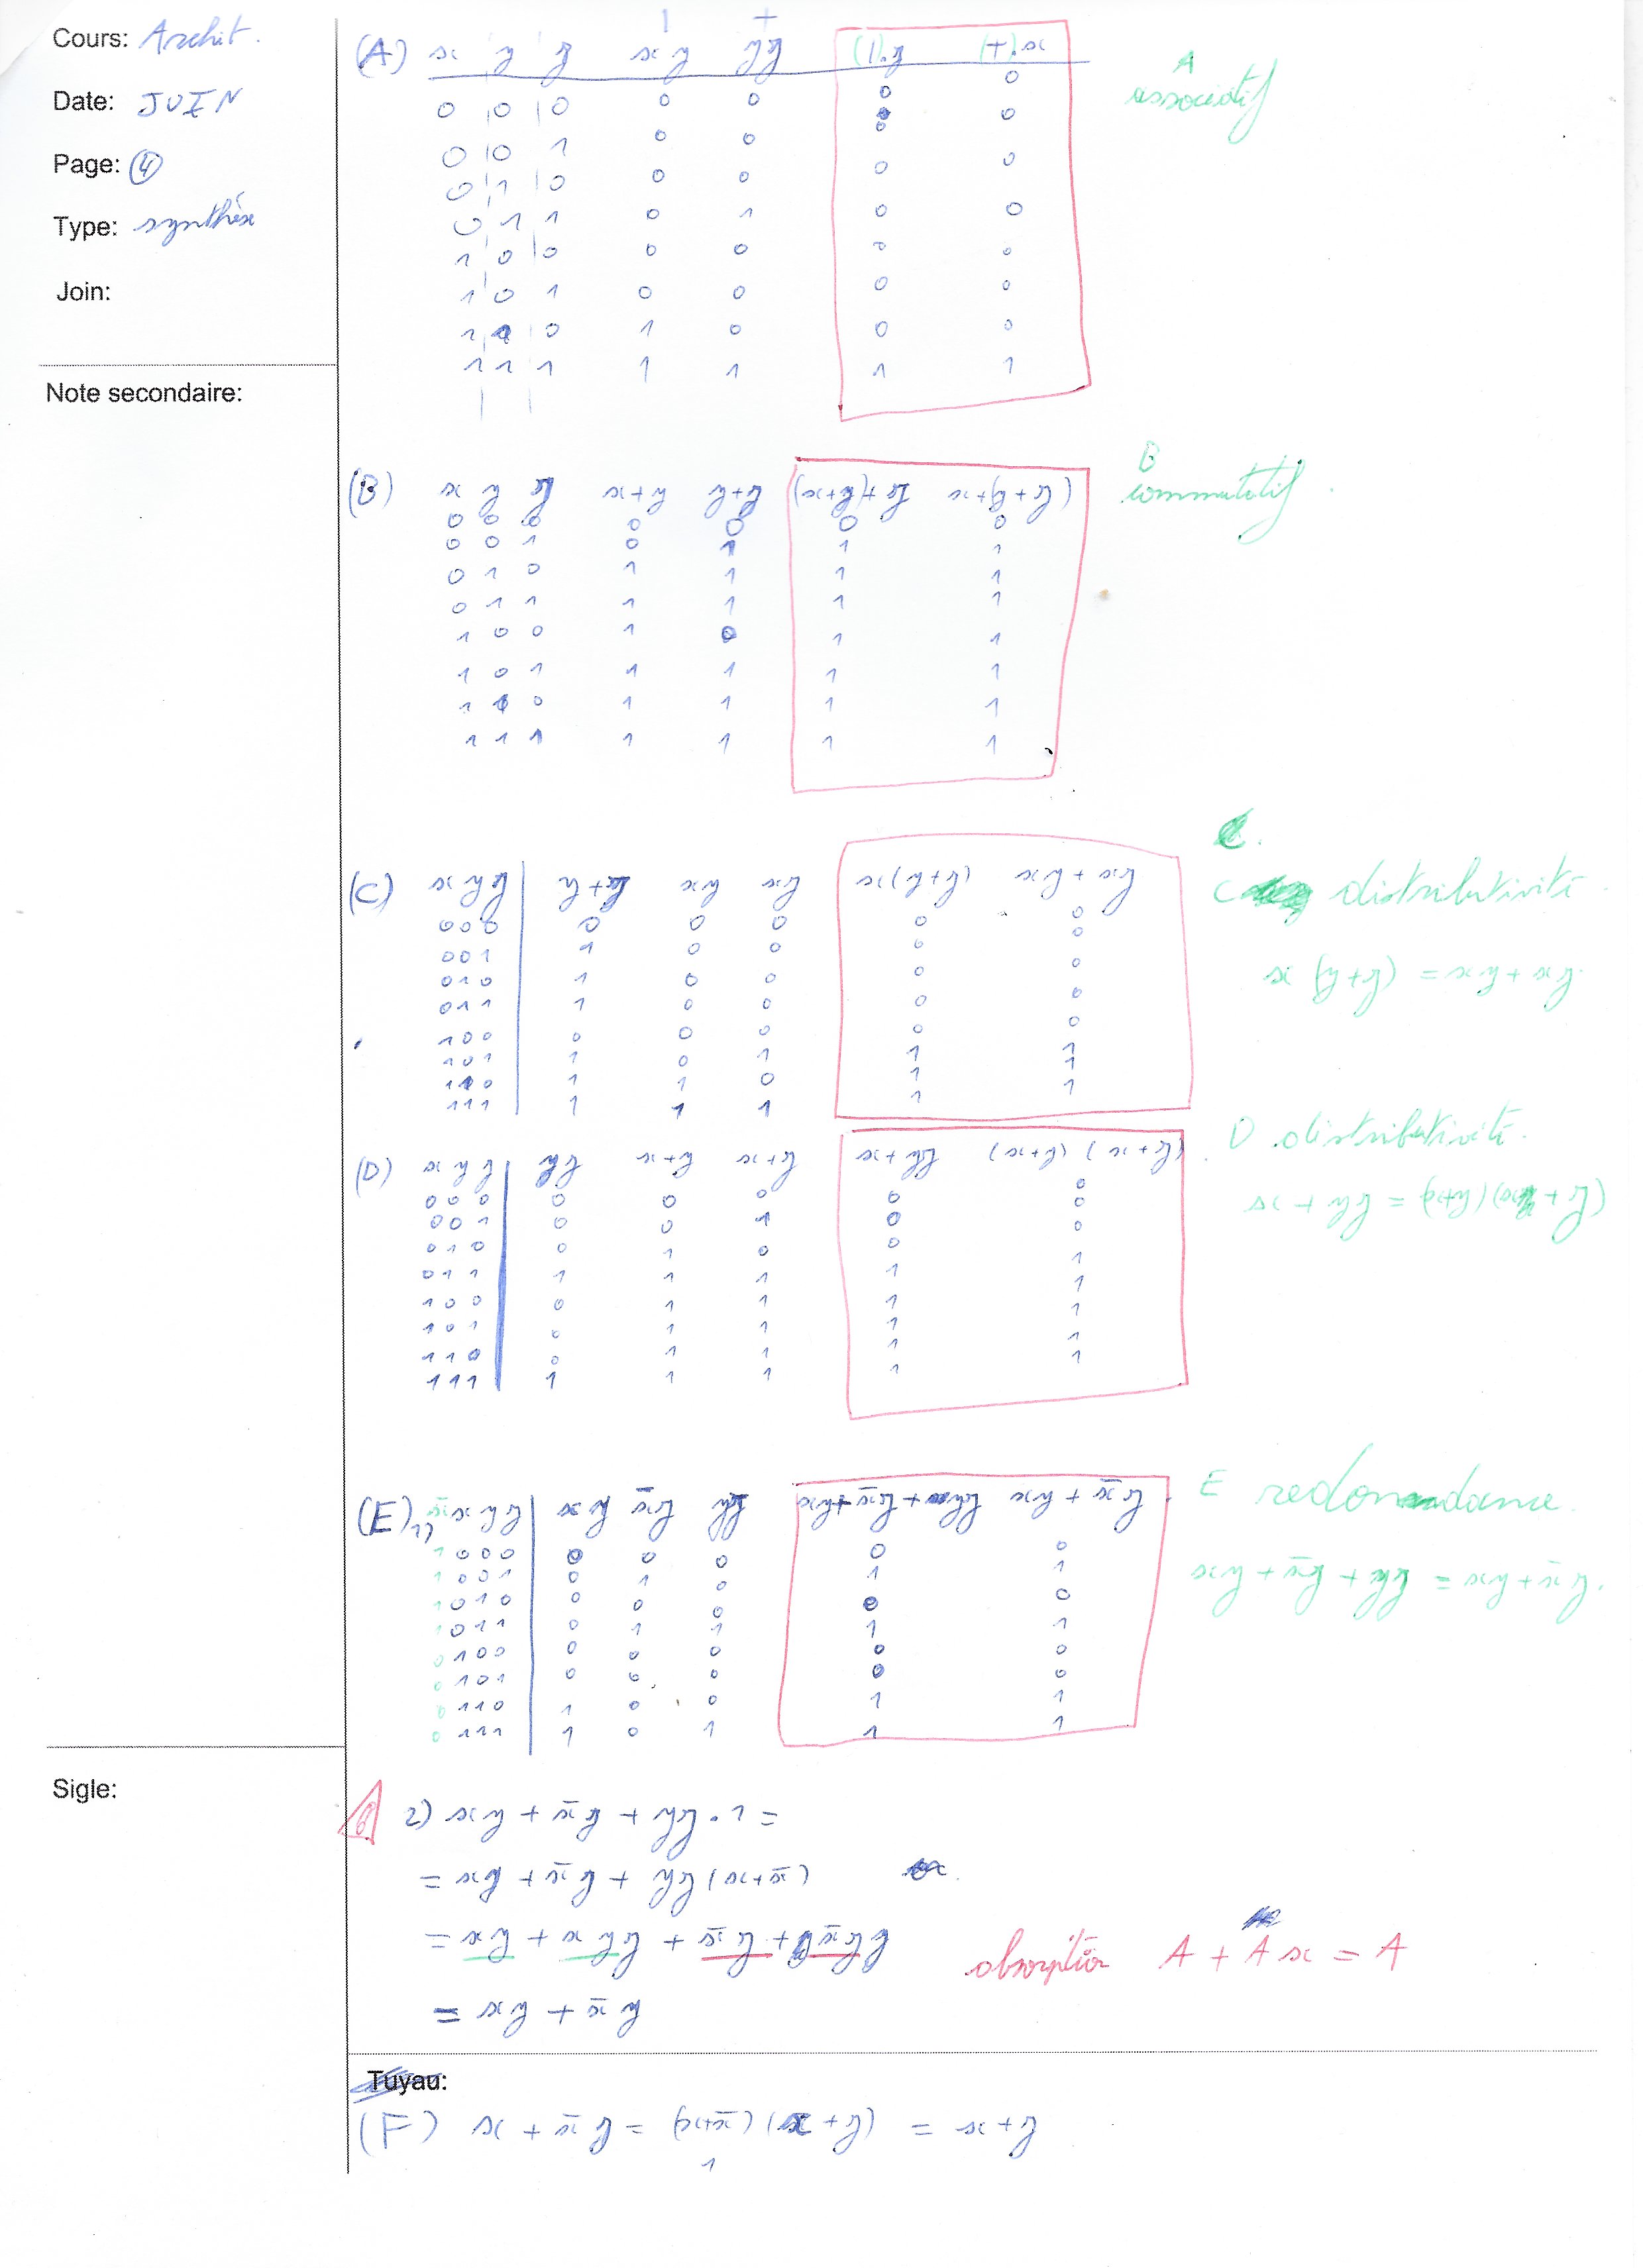 Cours: Archit.
Date: JUIN
Page: 4
Type: synthèse
Join:
Note secondaire:
Sigle:
(A) x y z xy yz (1).z (+).x
0 0 0 0 0 0 0
0 0 1 0 0 0 0
0 1 0 0 0 0 0
0 1 1 0 1 0 0
1 0 0 0 0 0 0
1 0 1 0 0 0 0
1 1 0 1 0 0 0
1 1 1 1 1 1 1
A
associatif
(B) x y z x+y y+z (x+y)+z x+(y+z)
0 0 0 0 0 0 0
0 0 1 0 1 1 1
0 1 0 1 1 1 1
0 1 1 1 1 1 1
1 0 0 1 0 1 1
1 0 1 1 1 1 1
1 1 0 1 1 1 1
1 1 1 1 1 1 1
B
commutatif.
(C) x y z y+z xy xz x(y+z) xy+xz
0 0 0 0 0 0 0 0
0 0 1 1 0 0 0 0
0 1 0 1 0 0 0 0
0 1 1 1 0 0 0 0
1 0 0 0 0 0 0 0
1 0 1 1 0 1 1 1
1 1 0 1 1 0 1 1
1 1 1 1 1 1 1 1
C.
C distributivité.
x (y+z) = xy + xz.
(D) x y z yz x+y x+z x+yz (x+y) (x+z)
0 0 0 0 0 0 0 0
0 0 1 0 0 1 0 0
0 1 0 0 1 0 0 0
0 1 1 1 1 1 1 1
1 0 0 0 1 1 1 1
1 0 1 0 1 1 1 1
1 1 0 0 1 1 1 1
1 1 1 1 1 1 1 1
D. distributivité.
x + yz = (x+y)(x+z)
(E) 1) x̄ x y z xy x̄z yz xy+x̄z+yz xy+x̄z
1 0 0 0 0 0 0 0 0
1 0 0 1 0 1 0 1 1
1 0 1 0 0 0 0 0 0
1 0 1 1 0 1 1 1 1
0 1 0 0 0 0 0 0 0
0 1 0 1 0 0 0 0 0
0 1 1 0 1 0 0 1 1
0 1 1 1 1 0 1 1 1
E redondance.
xy + x̄z + yz = xy + x̄z.
2) xy + x̄z + yz . 1 =
= xy + x̄z + yz (x+x̄)
= xy + xyz + x̄z + x̄yz
absorption A + Ax = A
= xy + x̄y
Tuyau:
(F) x + x̄z = (x+x̄) (x+z) = x+z
1